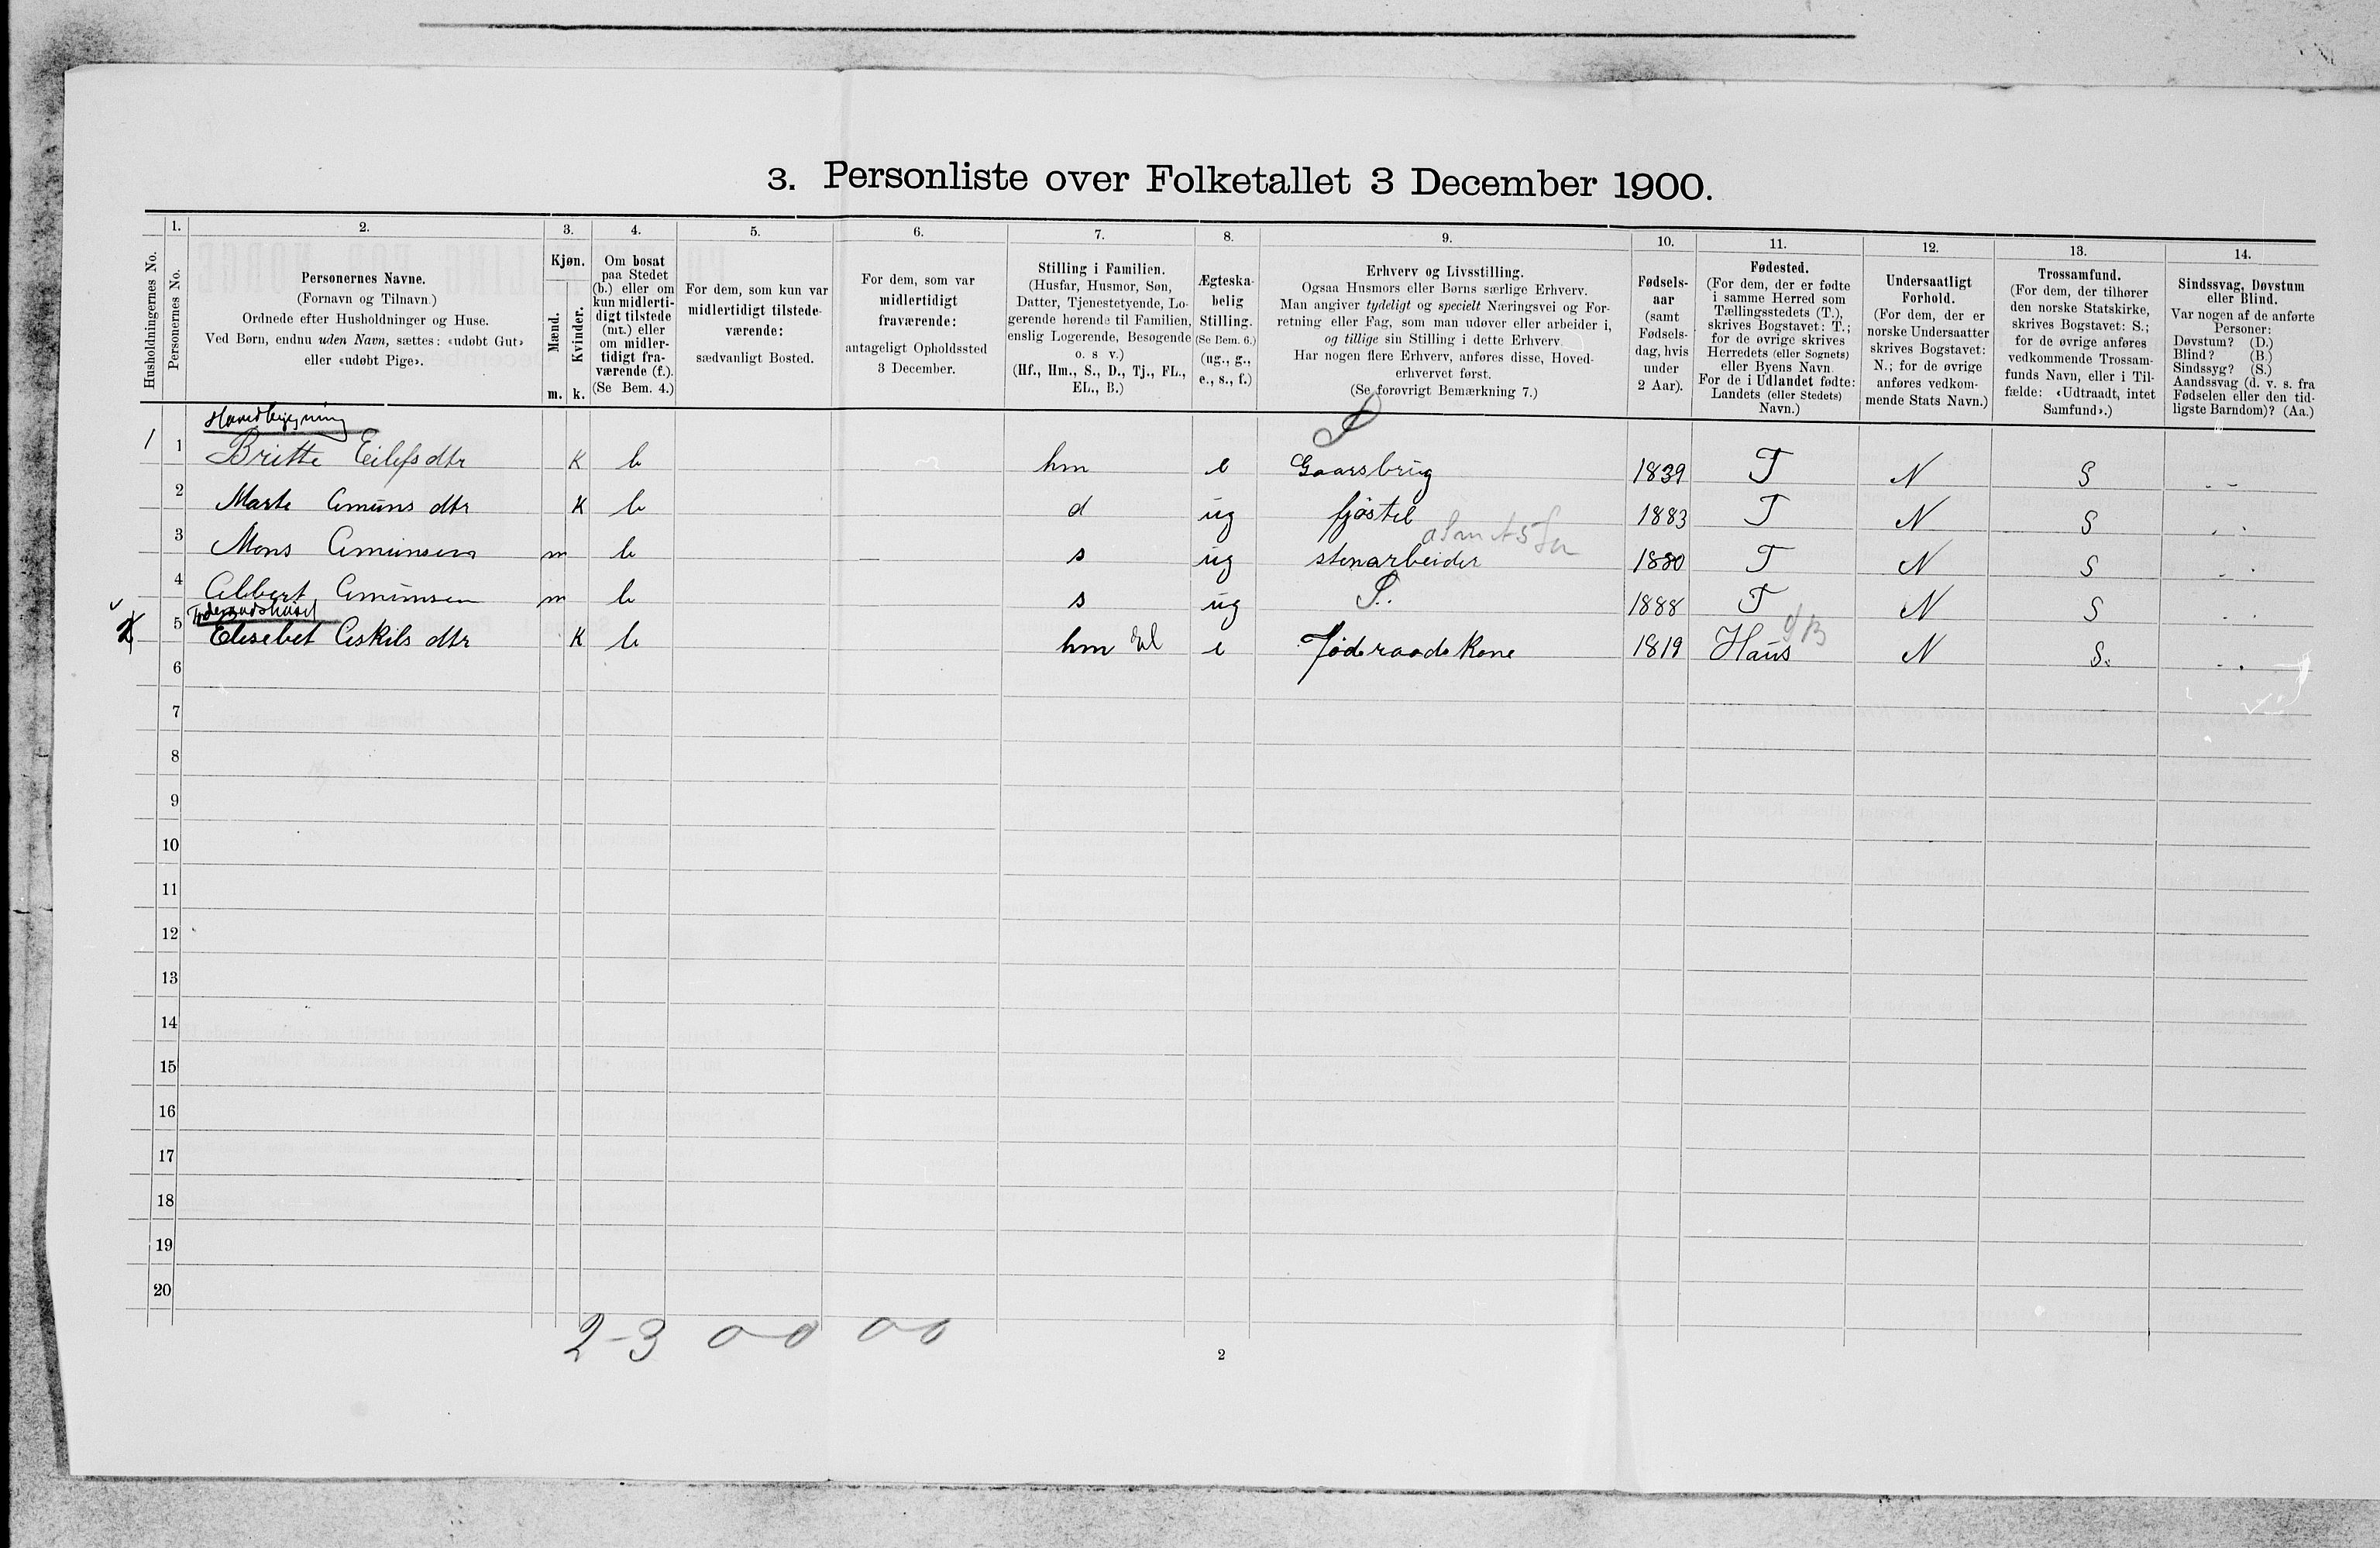 3. Personliste over Folketallet 3 December 1900.
1. 2. 3. 4. 5. 6. 7. 8. 9. 10. 11. 12. 13. 14.
Husholdningernes No.
Personernes No.
Personernes Navne.
(Fornavn og Tilnavn.)
Ordnede efter Husholdninger og Huse.
Ved Børn, endnu uden Navn, sættes: «udøbt Gut»
eller «udøbt Pige».
Kjøn.
Mænd.
Kvinder.
m. k.
Om bosat
paa Stedet
(b.) eller om
kun midlerti-
digt tilstede
(mt.) eller
om midler-
tidigt fra-
værende (f.).
(Se Bem. 4.)
For dem, som kun var
midlertidigt tilstede-
værende:
sædvanligt Bosted.
For dem, som var
midlertidigt
fraværende:
antageligt Opholdssted
3 December.
Stilling i Familien.
(Husfar, Husmor, Søn,
Datter, Tjenestetyende, Lo-
gerende hørende til Familien,
enslig Logerende, Besøgende
o. s v.)
(Hf., Hm., S., D., Tj., FL.,
EL., B.)
Ægteska-
belig
Stilling.
(Se Bem. 6.)
(ug., g.,
e., s., f.)
Erhverv og Livsstilling.
Ogsaa Husmors eller Børns særlige Erhverv.
Man angiver tydeligt og specielt Næringsvei og For-
retning eller Fag, som man udøver eller arbeider i,
og tillige sin Stilling i dette Erhverv.
Har nogen flere Erhverv, anføres disse, Hoved-
erhvervet først.
(Se forøvrigt Bemærkning 7.)
Fødsels-
aar
(samt
Fødsels-
dag, hvis
under
2 Aar).
Fødested.
(For dem, der er fødte
i samme Herred som
Tællingsstedets (T.),
skrives Bogstavet: T.;
for de øvrige skrives
Herredets (eller Sognets)
eller Byens Navn.
For de i Udlandet fødte:
Landets (eller Stedets)
Navn.)
Undersaatligt
Forhold.
(For dem, der er
norske Undersaatter
skrives Bogstavet:
N.; for de øvrige
anføres vedkom-
mende Stats Navn.)
Trossamfund.
(For dem, der tilhører
den norske Statskirke,
skrives Bogstavet: S.;
for de øvrige anføres
vedkommende Trossam-
funds Navn, eller i Til-
fælde: «Udtraadt, intet
Samfund».)
Sindssvag, Døvstum
eller Blind.
Var nogen af de anførte
Personer:
Døvstum? (D.)
Blind? (B.)
Sindssyg? (S.)
Aandssvag (d. v. s. fra
Fødselen eller den tid-
ligste Barndom)? (Aa.)
Hovedbygning
1 1 Britte Eilefsdtr K b hm e Gaarsbrug 1839 T N S
2 Marte Amuns dtr K b d ug fjøstel 1883 T N S
3 Mons Amunsen m b s ug stenarbeider 1880 T N S
4 Albert Amunsen m b s ug S. 1888 T N S
2 5 Elisebet Askils dtr K b hm El e Føderaads Kone 1819 Haus N S.
6
7
8
9
10
11
12
13
14
15
16
17
18
19
20
2-3 0-0 0-0
2